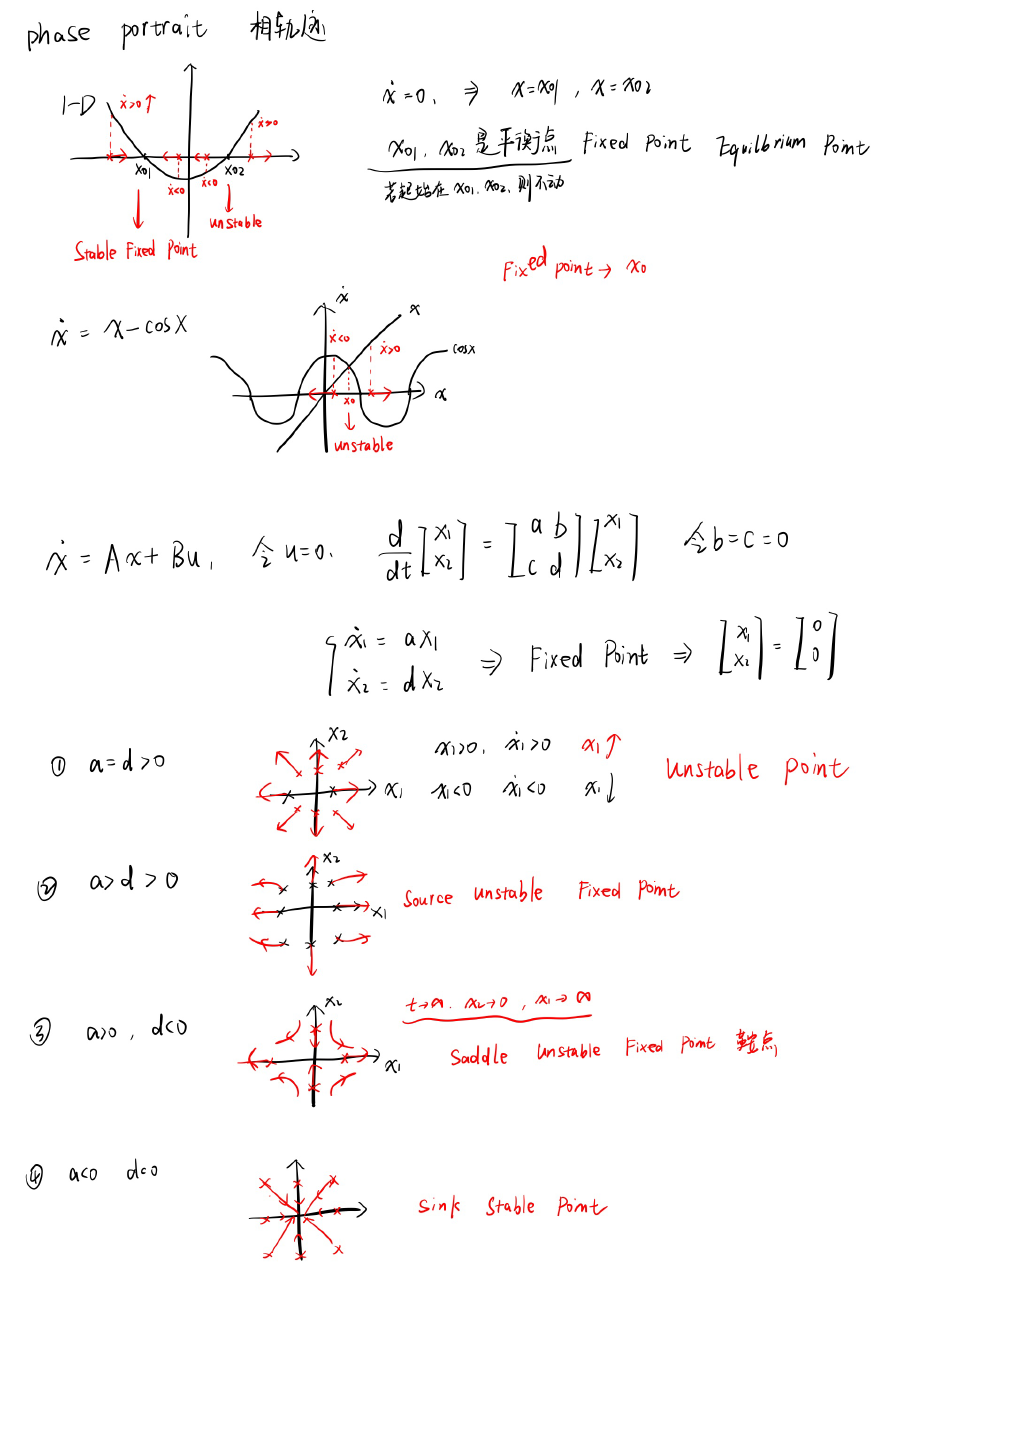 phase portrait 相轨迹
1-D
ẋ>0↑
ẋ>0
x01
ẋ<0
ẋ<0
x02
Stable Fixed Point
unstable
ẋ=0, ⇒ x=x01, x=x02
x01, x02 是平衡点 Fixed Point Equilbrium Point
若起始在 x01, x02, 则不动
Fixed point → x0
ẋ = x-cosX
ẋ
x
ẋ<0
ẋ>0
cosx
x0
x
unstable
ẋ = Ax + Bu, 令 u=0. d/dt [x1 x2] = [a b c d] [x1 x2] 令 b=c=0
{ ẋ1 = ax1
ẋ2 = dx2 ⇒ Fixed Point ⇒ [x1 x2] = [0 0]
① a=d>0
x2
x1
x1>0, ẋ1>0 x1↑
x1<0 ẋ1<0 x1↓
Unstable point
② a>d>0
x2
x1
Source unstable Fixed Point
③ a>0, d<0
x2
x1
t→∞. x2→0, x1→∞
Saddle Unstable Fixed Point 鞍点
④ a<0 d<0
Sink Stable Point